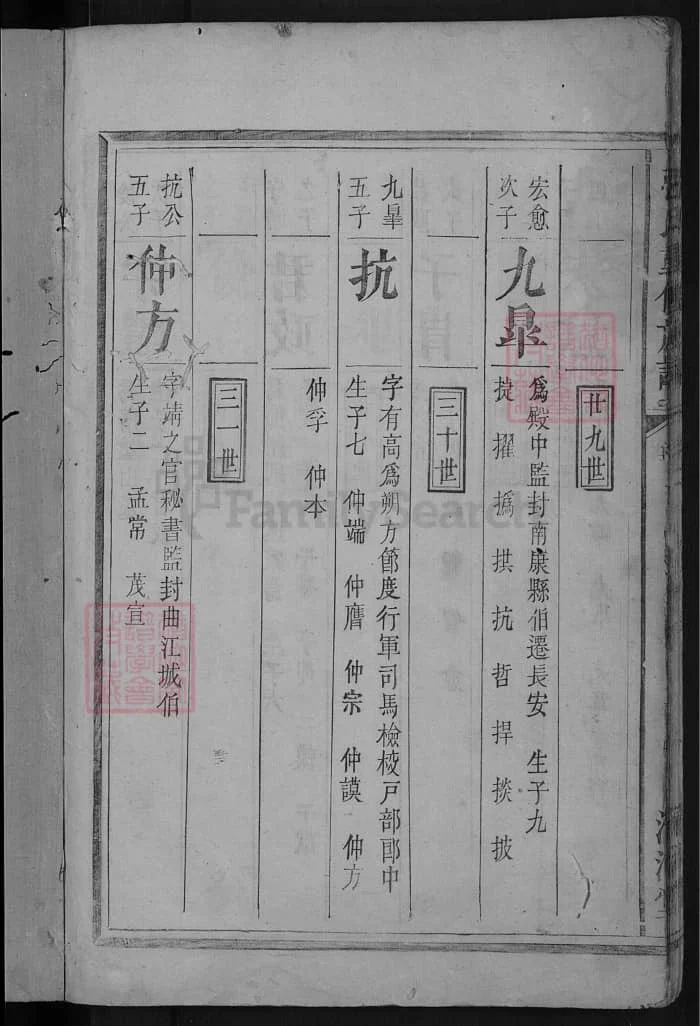 廿九世
宏愈
次子
九皐
爲殿中監封南康縣伯遷長安 生子九
捷 擢 撝 拱 抗 哲 捍 掞 披
三十世
九皐
五子
抗
字有高爲朔方節度行軍司馬檢校戸部郎中
生子七 仲端 仲膺 仲宗 仲謨 仲方
仲孚 仲本
三一世
抗公
五子
仲方
字靖之官秘書監封曲江城伯
生子二 孟常 茂宣
FamilySearch